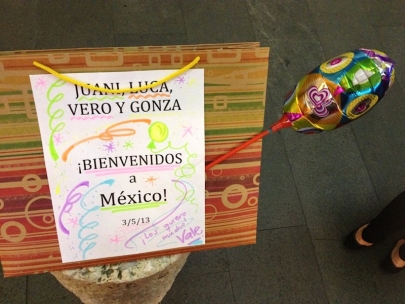 JUANI, LUCA,
VERO Y GONZA
¡BIENVENIDOS
a
México!
3/5/13
¡Los quiero
mucho!
Vale